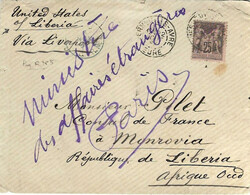 United States
of Liberia
Via Liverpool
HAVRE
25
Ministère
des affaires étrangères
Paris
Monsieur Pellet
Consul de France
à Monrovia
République de Liberia
Afrique Occid